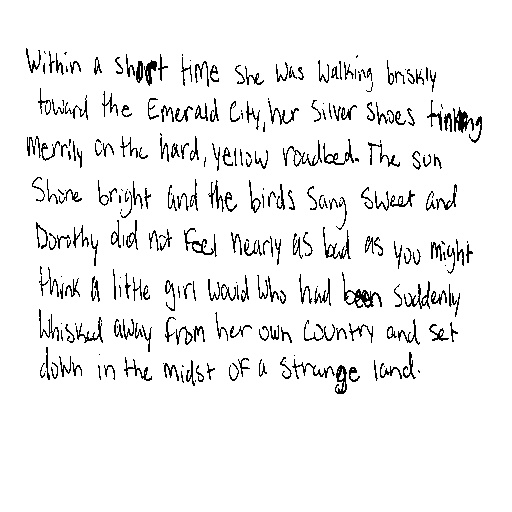 Within a short time she was walking briskly
toward the Emerald City, her Silver Shoes tinkling
merrily on the hard, yellow roadbed. The sun
shone bright and the birds sang sweet and
Dorothy did not feel nearly as bad as you might
think a little girl would who had been suddenly
whisked away from her own country and set
down in the midst of a strange land.